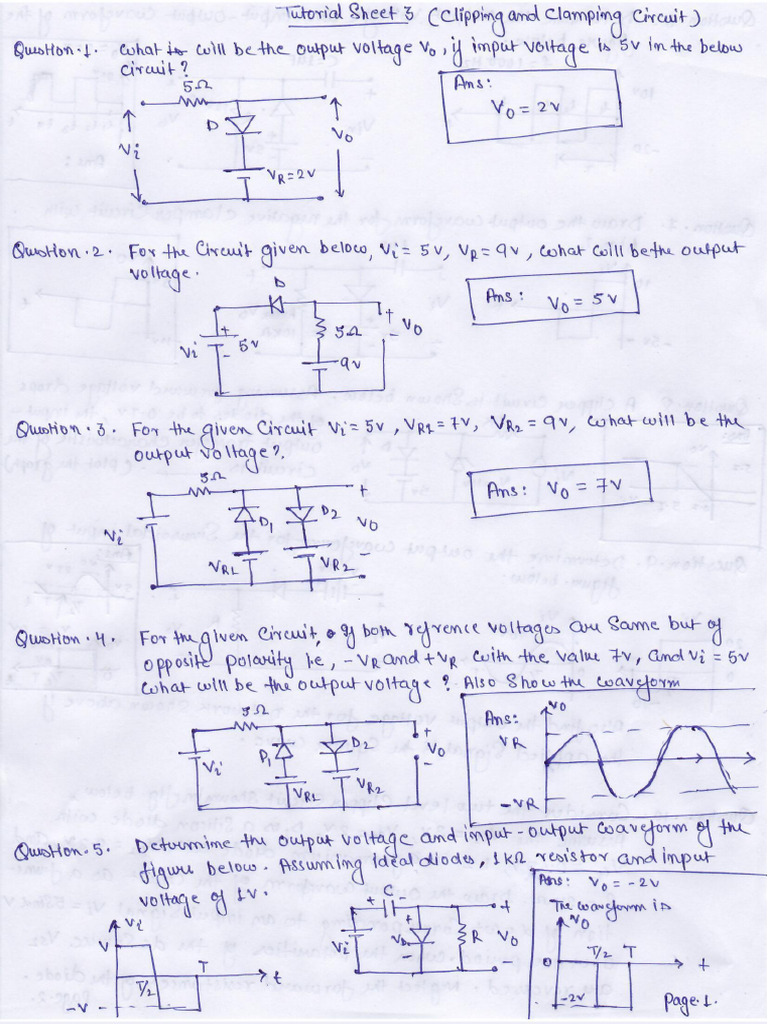 Tutorial Sheet 3 (Clipping and Clamping Circuit)
Question·1. What is will be the output voltage Vo, if input voltage is 5v in the below
circuit?
5Ω
Ans:
Vo = 2v
D
Vi
Vo
VR=2V
Question·2. For the Circuit given below, Vi = 5v, VR = 9v, what will be the output
voltage.
D
Ans: Vo = 5v
+
Vi
5v
-
5Ω
+
Vo
-
9v
Question·3. For the given Circuit Vi = 5v, VR1 = 7v, VR2 = 9v, what will be the
output voltage?
5Ω
Ans: Vo = 7v
Vi
D1
D2
+
Vo
-
VR1
VR2
Question·4. For the given Circuit, if both refrence voltages are Same but of
opposite polarity ie, -VR and +VR with the value 7v, and Vi = 5v
what will be the output voltage? Also Show the waveform
5Ω
Ans:
Vo
VR
-VR
Vi
D1
D2
+
Vo
-
VR1
VR2
Question·5. Determine the output voltage and input-output waveform of the
figure below. Assuming ideal diodes, 1kΩ resistor and input
voltage of 1v.
Vi
V
-V
T/2
T
t
+ C -
+
Vi
-
+
VD
-
R
+
Vo
-
Ans: Vo = -2v
The waveform is
Vo
0
T/2
T
t
-2v
Page·1.